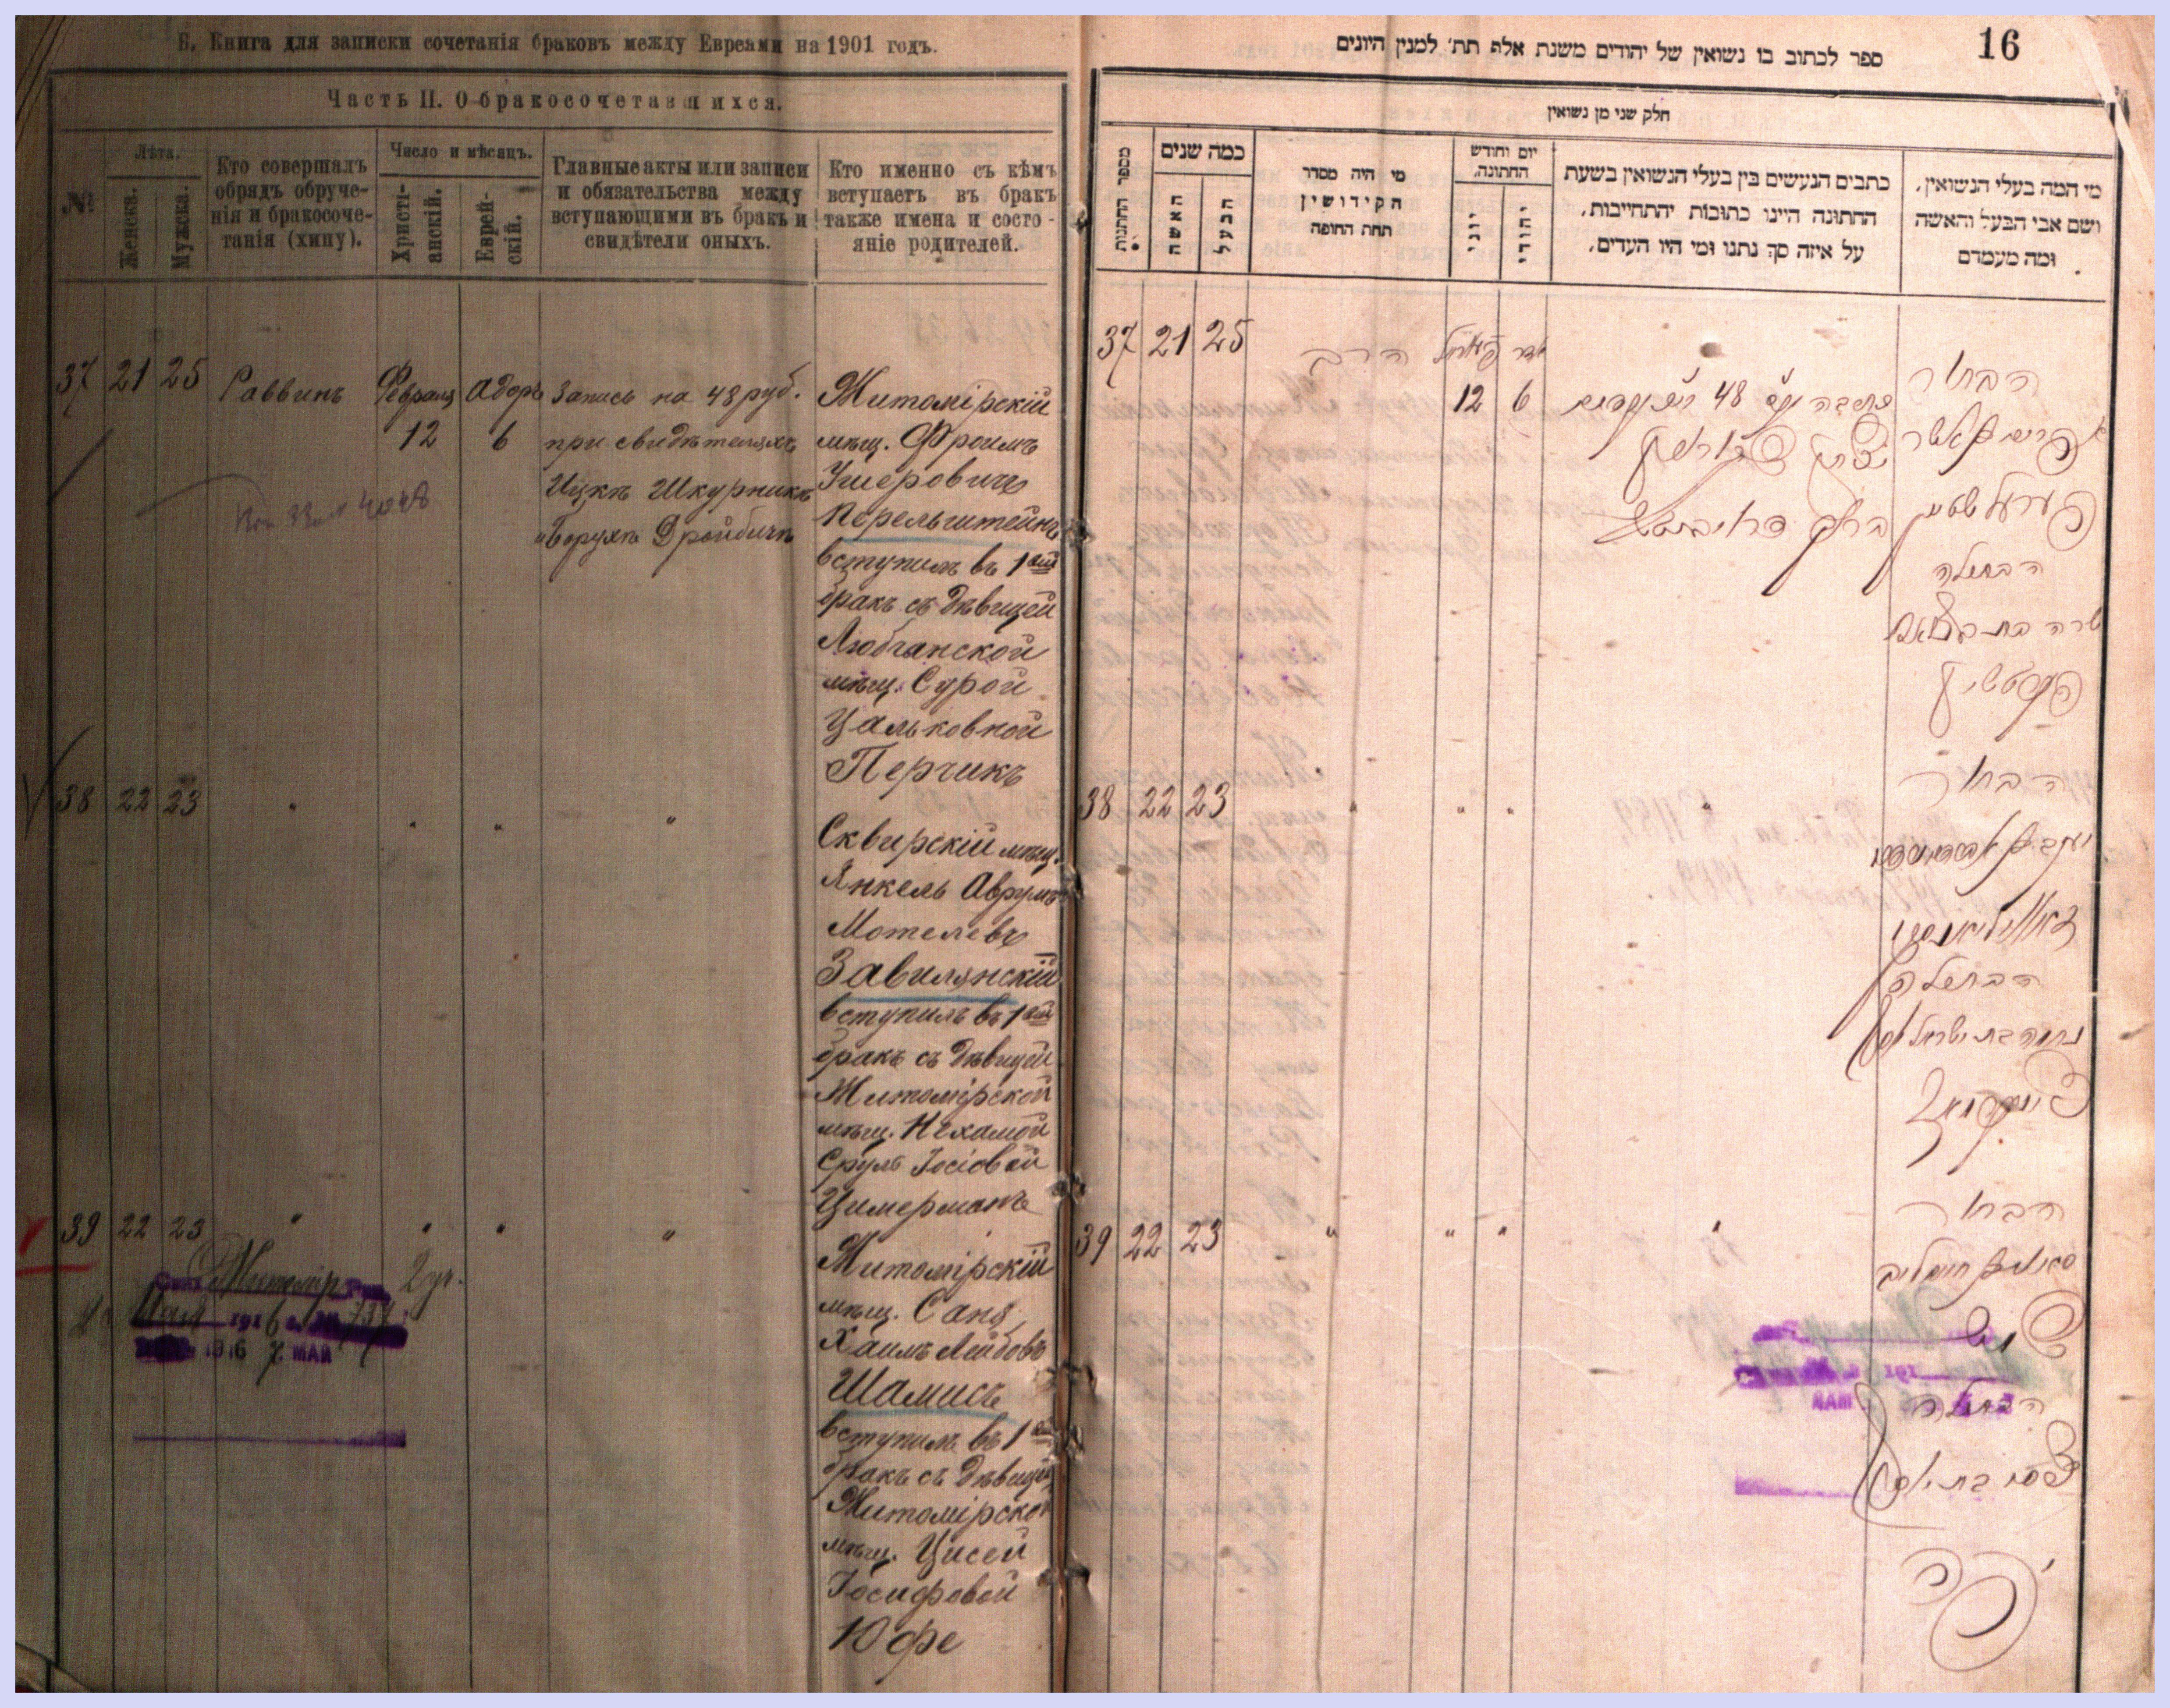 Б. Книга для записки сочетанія браковъ между Евреями на 1901 годъ.
Часть II. О бракосочетавшихся.
№
Лѣта.
Женска.
Мужска.
Кто совершалъ
обрядъ обруче-
нія и бракосоче-
танія (хипу).
Число и мѣсяцъ.
Христі-
анскій.
Еврей-
скій.
Главные акты или записи
и обязательства между
вступающими въ бракъ и
свидѣтели оныхъ.
Кто именно съ кѣмъ
вступаетъ въ бракъ
также имена и состо-
яніе родителей.
37 21 25 Раввинъ Февраля Адоръ Запись на 48 руб.
12 6 при свидѣтеляхъ
Ицкѣ Шкурникѣ
и Борухѣ Дройбичѣ
Житомірскій
мѣщ. Фроимъ
Ушеровичъ
Перельштейнъ
вступилъ въ 1ый
бракъ съ дѣвицей
Любчанской
мѣщ. Сурой
Цальковной
Перчикъ
38 22 23 " " " "
Сквирскій мѣщ.
Янкель Аврумъ
Мотелевъ
Завилянскій
вступилъ въ 1ый
бракъ съ дѣвицей
Житомірской
мѣщ. Нехамой
Сруль Іосіовой
Цимерманъ
39 22 23 " " " "
Житомірскій
мѣщ. Саня
Хаимъ Лейбовъ
Шамисъ
вступилъ въ 1ый
бракъ съ дѣвицей
Житомірской
мѣщ. Цисей
Іосифовой
Юфе
Житомір 2 уч.
Мая 1916
1916 7. МАЙ
16
ספר לכתוב בו נשואין של יהודים משנת אלפ תת׳ למנין היונים
חלק שני מן נשואין
מספר החתנות
כמה שנים
האשה
הבעל
מי היה מסדר
הקידושין
תחת החופה
יום וחודש
החתונה.
יוני
יהודי
כתבים הנעשים בין בעלי הנשואין בשעת
החתונה היינו כתובות יהתחייבות,
על איזה סך נתנו ומי היו העדים.
מי המה בעלי הנשואין,
ושם אבי הבעל והאשה
ומה מעמדם
37 21 25 הרב אדר
12 6 כתובה 48
הבחור
פערעלשטיין
הבתולה
שרה בת
38 22 23 " " " "
הבחור
הבתולה
נחמה בת ישראל יוסף
39 22 23 " " " "
הבחור
הבתולה
191
МАЯ